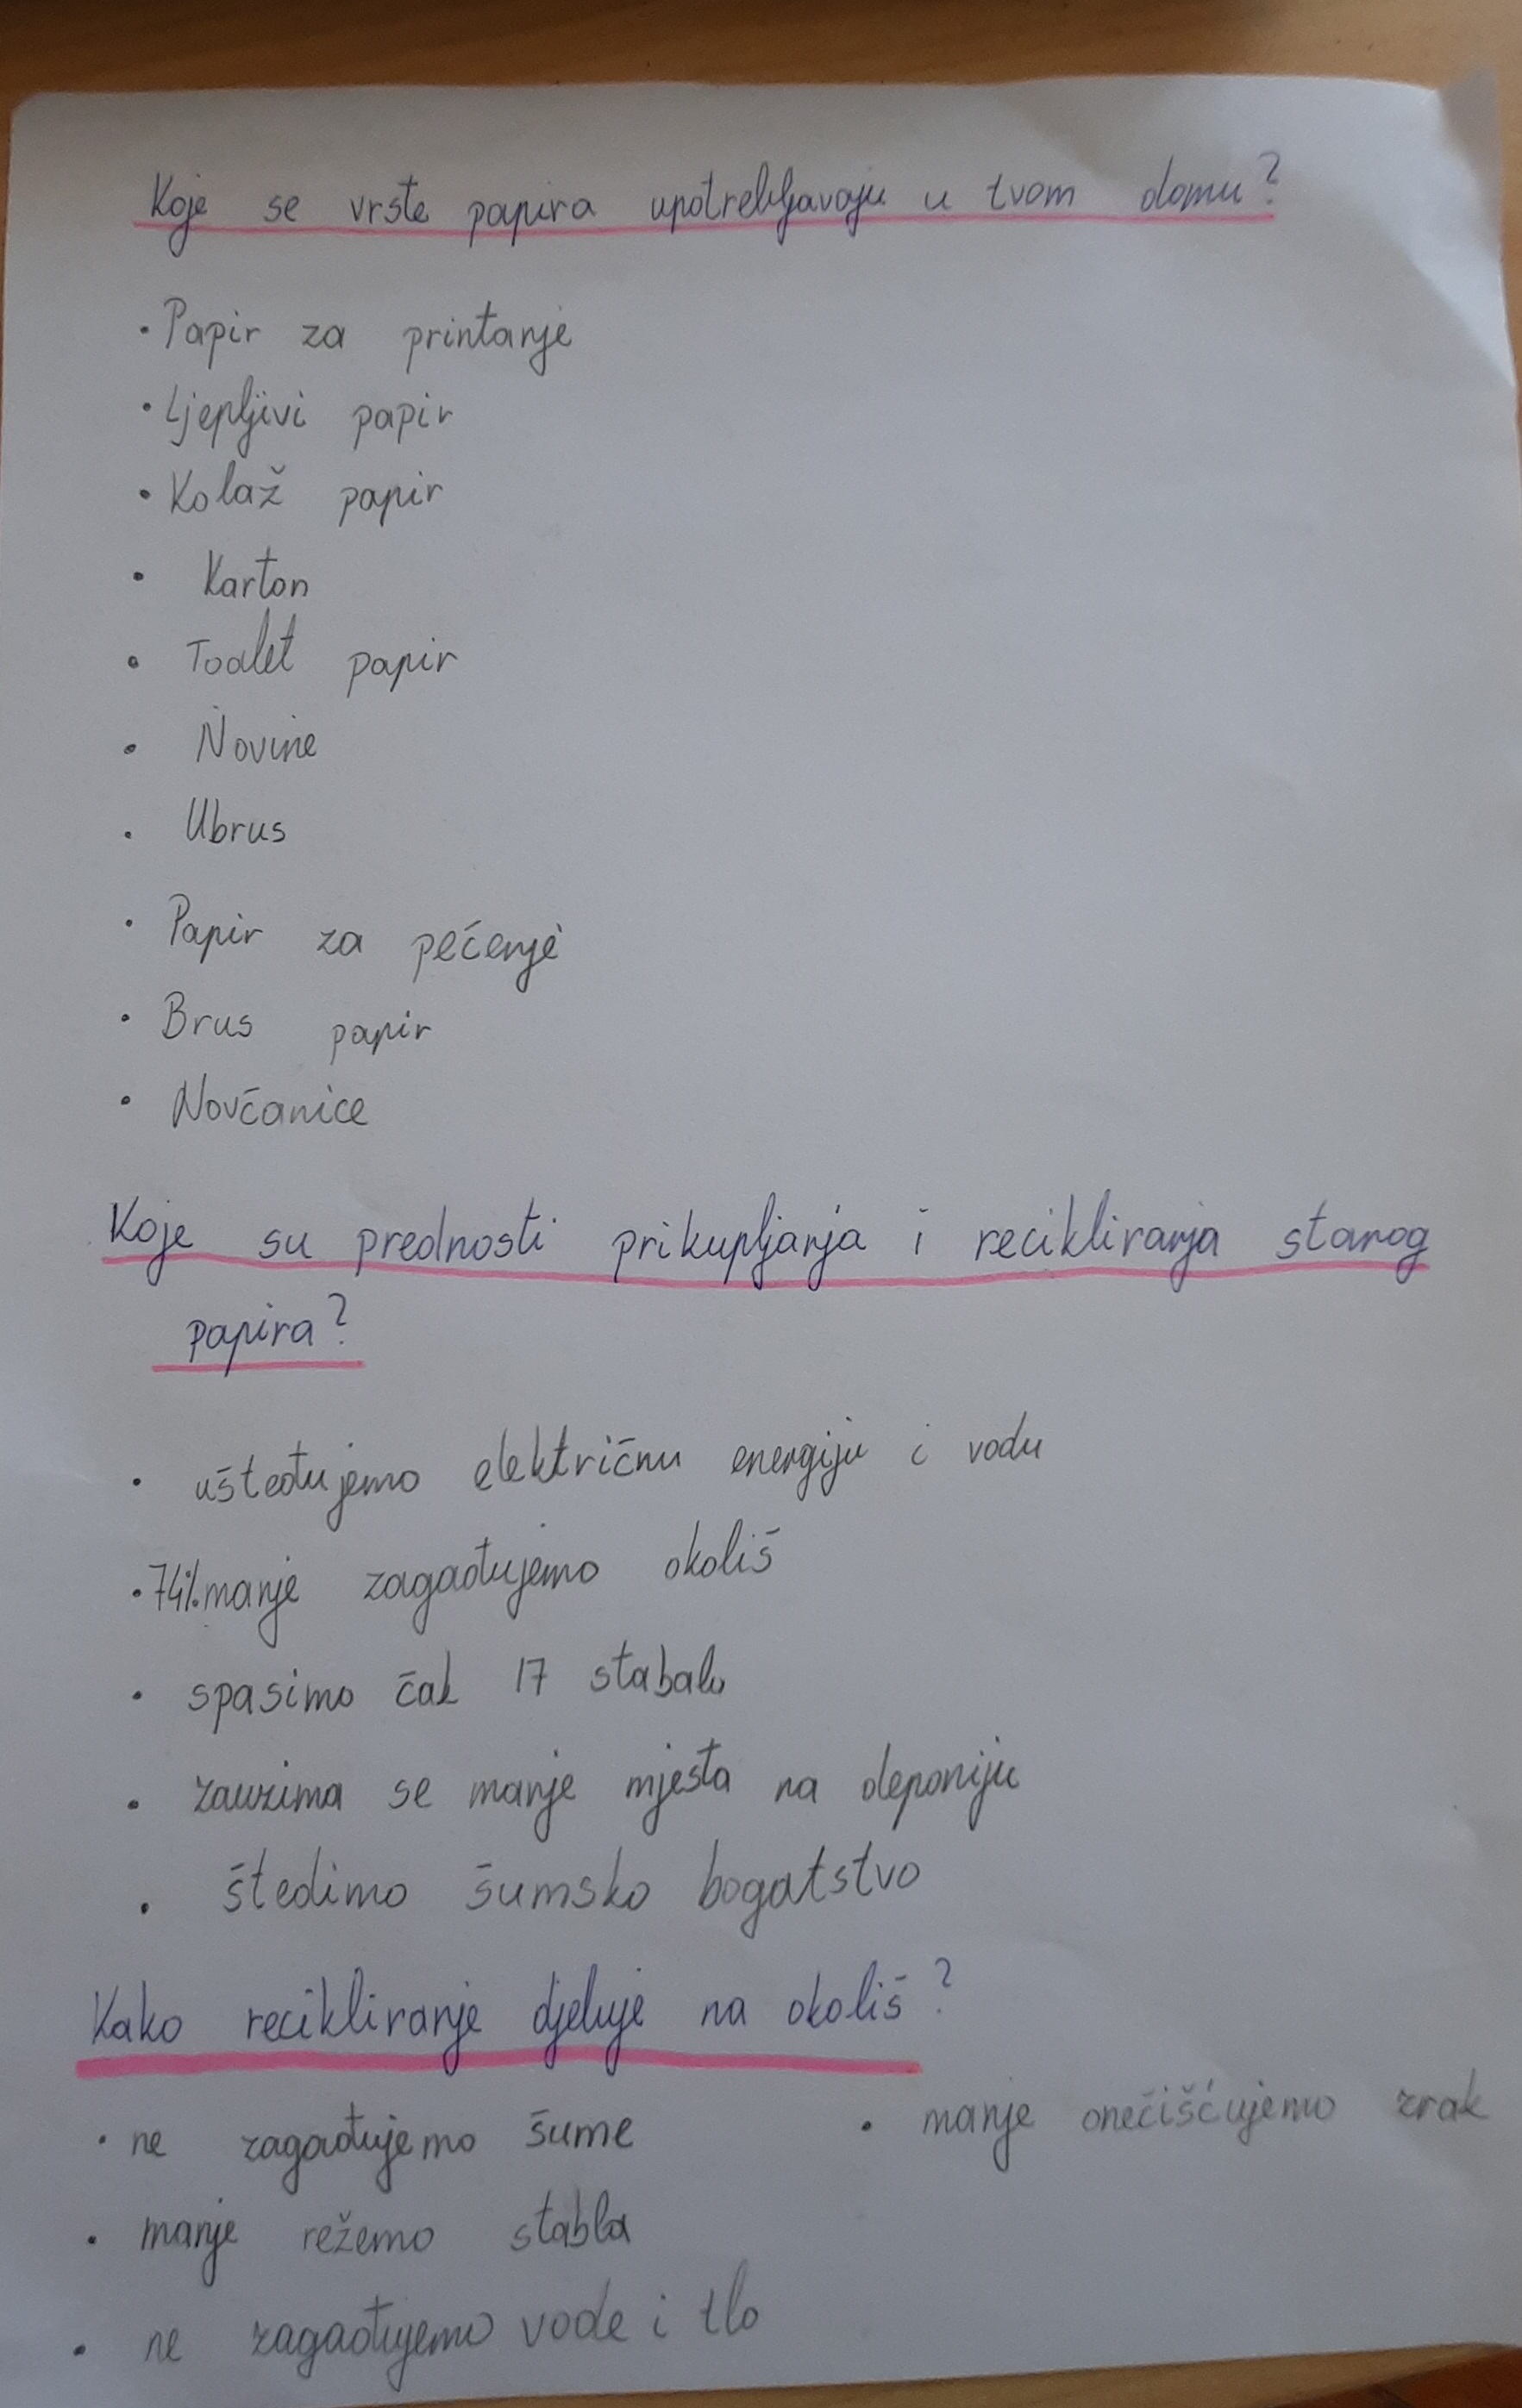 Koje se vrste papira upotrebljavaju u tvom domu?
• Papir za printanje
• Ljepljivi papir
• Kolaž papir
• Karton
• Toalet papir
• Novine
• Ubrus
• Papir za pečenje
• Brus papir
• Novčanice
Koje su prednosti prikupljanja i recikliranja starog
papira?
• uštedujemo električnu energiju i vodu
• 74% manje zagađujemo okoliš
• spasimo čak 17 stabala
• zauzima se manje mjesta na deponiju
• štedimo šumsko bogatstvo
Kako recikliranje djeluje na okoliš?
• ne zagađujemo šume
• manje onečišćujemo zrak
• manje režemo stabla
• ne zagađujemo vode i tlo